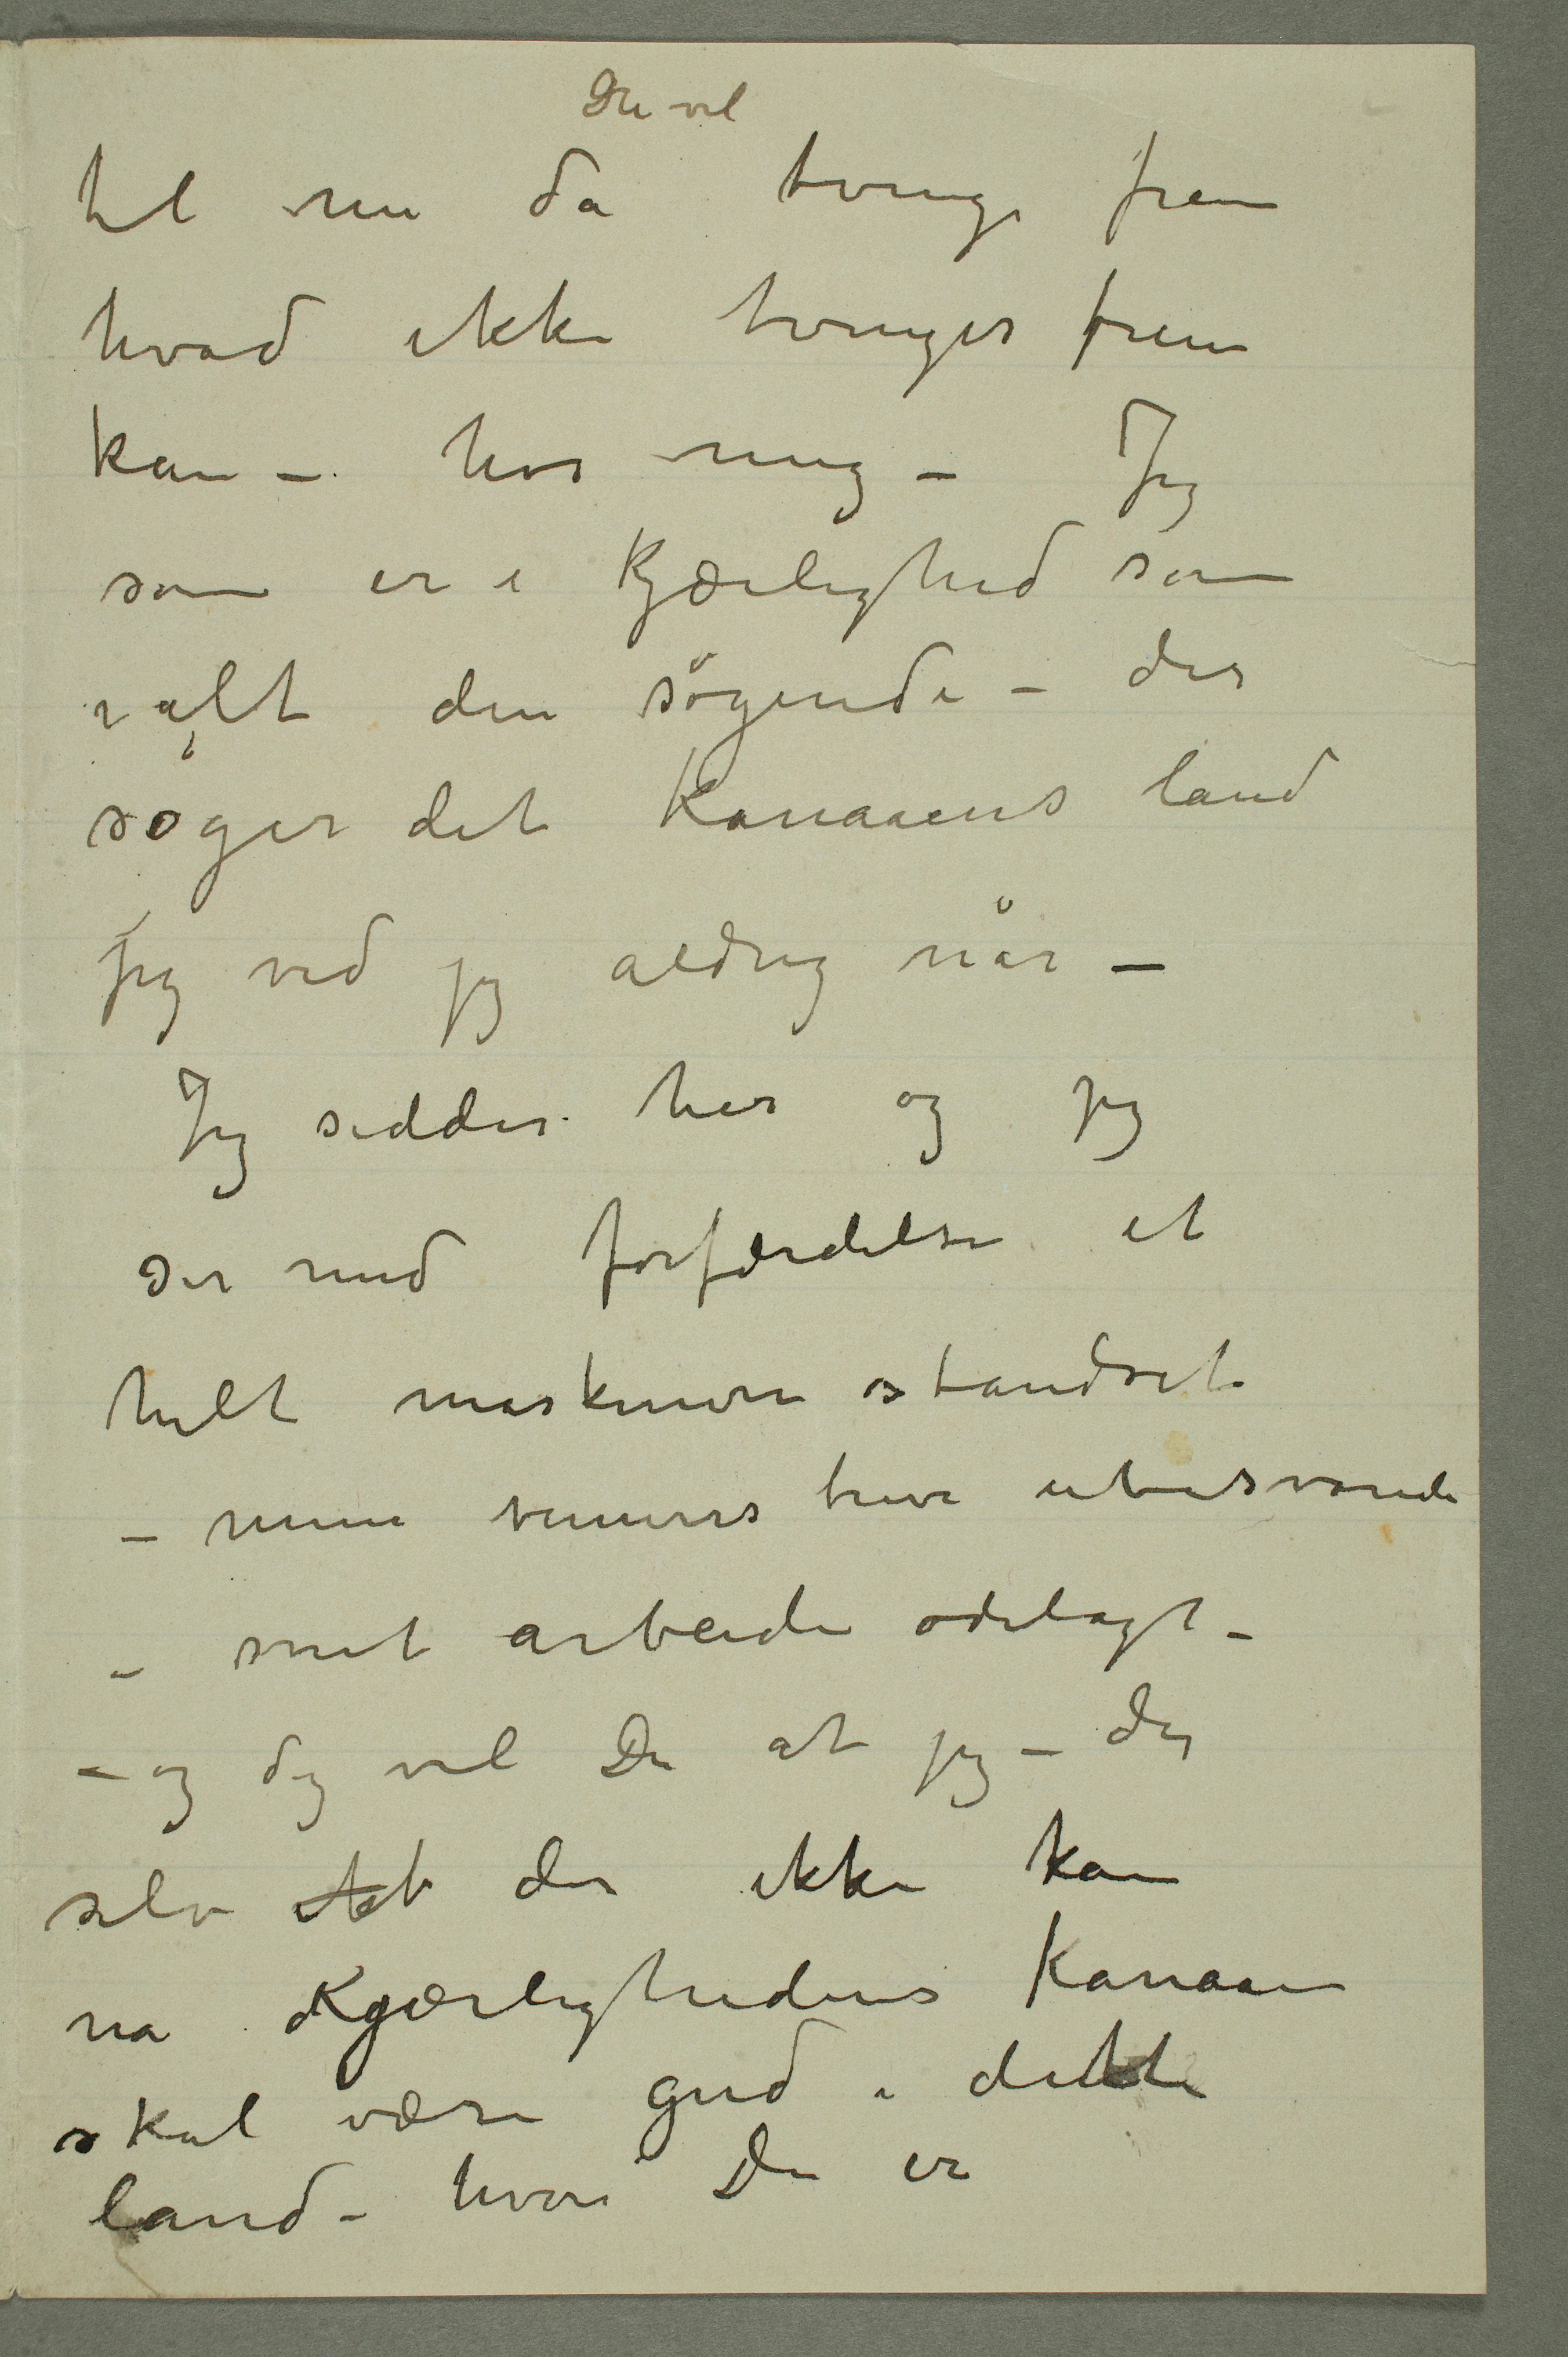 Du vil
til nu da tvinge frem
hvad ikke tvinges frem
kan – hos mig – Jeg
som er i Kjærlighed som
i alt den sögende – der
søger det Kanaaens land
jeg ved jeg aldrig når –
Jeg sidder her og jeg
ser med forfærdelse et
helt maskineri standset
– mine venners breve ubesvarede
– mit arbeide ødelagt –
– og dog vil Du at jeg – der
selv der ikke kan
na Kjærlighedens Kanaan
skal være gud i dette
land – hvori Du er